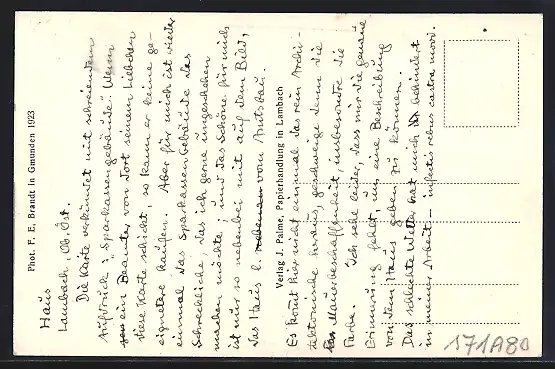 Haus
Lambach, Ob. Öst.
Die Karte verkündet mit schreiendem
Aufdruck: "Sparkassengebäude". Wenn
ein Beamter von dort seinem Liebchen
diese Karte schickt, so kann er keine ge-
eignetere kaufen. Aber für mich ist wieder
einmal das Sparkassengebäude das
Schreckliche, das ich gerne ungeschehen
machen möchte, und das Schöne für mich
ist nur so nebenbei mit auf dem Bild,
das Haus l. vom Amtsbau.
Es kommt hier nicht einmal das rein Archi-
tektonische heraus, geschweige denn die
Mauerbeschaffenheit, insbesondre die
Farbe. Ich sehe leider, dass mir die genaue
Erinnerung fehlt, um eine Beschreibung
von dem Haus geben zu können.
Das schlechte Wetter hat mich behindert
in meiner Arbeit — infectis rebus castra movi.
Phot. F. E. Brandt in Gmunden 1923
Verlag J. Palme, Papierhandlung in Lambach
171A80